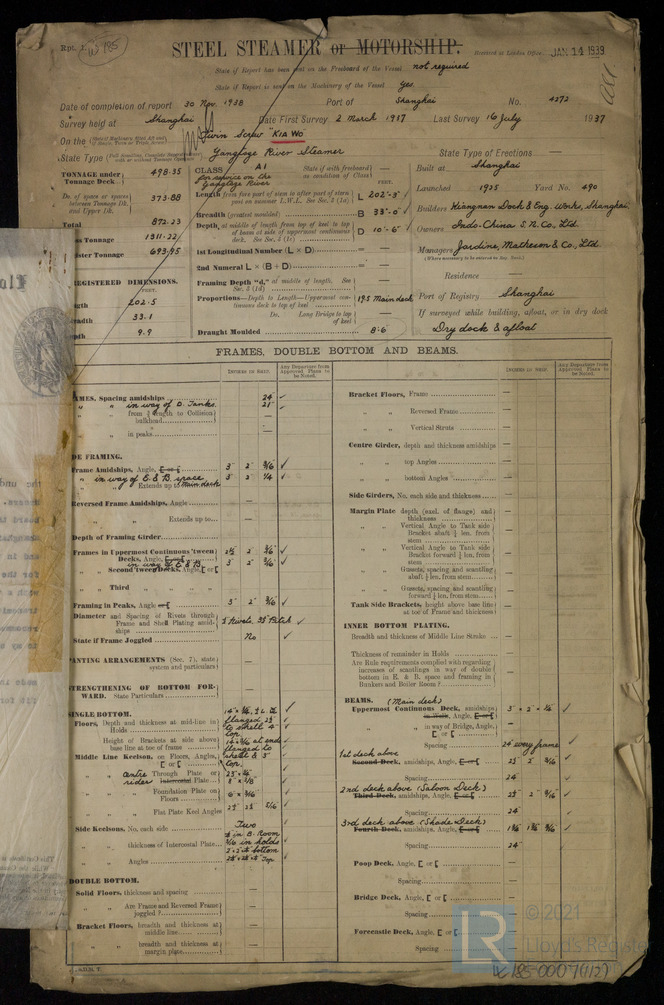 Rpt. 1.
STEEL STEAMER or MOTORSHIP.
Received at London Office JAN 14 1939
State if Report has been sent on the Freeboard of the Vessel not required
State if Report is sent on the Machinery of the Vessel Yes.
Date of completion of report 30 Nov. 1938 Port of Shanghai No. 4272
Survey held at Shanghai Date First Survey 2 March 1937 Last Survey 16 July 1937
On the Twin Screw "KIA WO"
State Type Yangtsze River Steamer State Type of Erections —
TONNAGE under Tonnage Deck 498.35
Do. of space or spaces between Tonnage Dk. and Upper Dk. 373.88
Total 872.23
Gross Tonnage 1311.22
Register Tonnage 693.45
REGISTERED DIMENSIONS.
FEET.
Length 202.5
Breadth 33.1
Depth 9.9
CLASS A1 State if with freeboard as condition of Class —
for service on the Yangtsze River
FEET.
Length from fore part of stem to after part of stern post on summer L.W.L. See Sec. 3 (1a) L 202'-3"
Breadth (greatest moulded) B 33'-0"
Depth, at middle of length from top of keel to top of beam at side of uppermost continuous deck. See Sec. 3 (1c) D 10'-6"
1st Longitudinal Number (L × D) —
2nd Numeral L × (B + D) —
Framing Depth "d," at middle of length. See Sec. 3 (1d) —
Proportions—Depth to Length—Uppermost continuous deck to top of keel 19.5 Main deck
Do. Long Bridge to top of keel
Draught Moulded 8'-6"
Built at Shanghai
Launched 1935 Yard No. 490
Builders Kiangnan Dock & Eng. Works, Shanghai
Owners Indo-China S.N. Co., Ltd.
Managers Jardine, Matheson & Co., Ltd
(Where necessary to be entered in Reg. Book.)
Residence —
Port of Registry Shanghai
If surveyed while building, afloat, or in dry dock
Dry dock & afloat
FRAMES, DOUBLE BOTTOM AND BEAMS.
INCHES IN SHIP.
Any Departure from Approved Plans to be Noted.
FRAMES, Spacing amidships 24
" " in way of D. Tanks 21
" " from length to Collision bulkhead —
" " in peaks —
SIDE FRAMING.
Frame Amidships, Angle, [ or [ 3 2 3/16
" in way of E & B. space 3 2 1/4
" " Extends up to Main deck
Reversed Frame Amidships, Angle —
" " Extends up to —
Depth of Framing Girder —
Frames in Uppermost Continuous 'tween Decks, Angle, [ or [ 2½ 2 3/16
in way of E & B. 3 2 3/16
" Second 'tween Decks, Angle, [ or [
" Third " " " " —
Framing in Peaks, Angle or [ 3 2 3/16
Diameter and Spacing of Rivets through Frame and Shell Plating amidships
State if Frame Joggled No
PANTING ARRANGEMENTS (Sec. 7), state system and particulars —
STRENGTHENING OF BOTTOM FORWARD. State Particulars —
SINGLE BOTTOM.
Floors, Depth and thickness at mid-line in Holds
Height of Brackets at side above base line at toe of frame
Middle Line Keelson, on Floors, Angle, [ or [
" " centre Through Plate or Intercostal Plate
rider
" " Foundation Plate on Floors 6 × 3/16
" " Flat Plate Keel Angles 2½ 2½ 5/16
Side Keelsons, No. each side Two
" " thickness of Intercostal Plate
in B. Room
in holds
" " Angles
DOUBLE BOTTOM.
Solid Floors, thickness and spacing —
" " Are Frame and Reversed Frame joggled? —
Bracket Floors, breadth and thickness at middle line —
" " breadth and thickness at margin plate —
Bracket Floors, Frame —
" " Reversed Frame —
" " Vertical Struts —
Centre Girder, depth and thickness amidships —
" " top Angles —
" " bottom Angles —
Side Girders, No. each side and thickness —
Margin Plate depth (excl. of flange) and thickness —
" " Vertical Angle to Tank side Bracket abaft ¼ len. from stem —
" " Vertical Angle to Tank side Bracket forward ¼ len. from stem —
" " Gussets, spacing and scantling abaft ¼ len. from stem —
" " Gussets, spacing and scantling forward ¼ len. from stem —
Tank Side Brackets, height above base line at toe of Frame and thickness —
INNER BOTTOM PLATING.
Breadth and thickness of Middle Line Strake —
Thickness of remainder in Holds —
Are Rule requirements complied with regarding increases of scantlings in way of double bottom in E. & B. space and framing in Bunkers and Boiler Room? —
BEAMS. (Main deck)
Uppermost Continuous Deck, amidships, Angle, [ or [ 3 × 2 × ¼
" " in way of Bridge, Angle, [ or [ —
Spacing 24" every frame
1st deck above
Second Deck, amidships, Angle, [ or [ 2½ 2 3/16
Spacing 24"
2nd deck above (Saloon Deck)
Third Deck, amidships, Angle, [ or [ 2½ 2 3/16
Spacing 24"
3rd deck above (Shade Deck)
Fourth Deck, amidships, Angle, [ or [ 1¾ 1¾ 3/16
Spacing 24"
Poop Deck, Angle, [ or [ —
Spacing —
Bridge Deck, Angle, [ or [ —
Spacing —
Forecastle Deck, Angle, [ or [ —
Spacing —
LR
©2021
Lloyd's Register